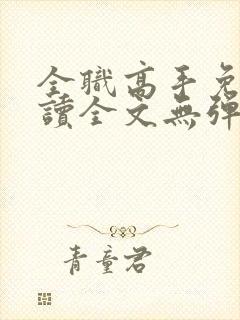 全職高手免
讀全文無彈
青童君